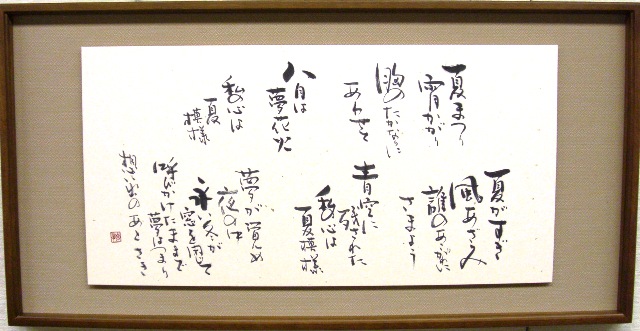 夏がすぎ
風あざみ
誰のあこがれに
さまよう
青空に
残された
私の心は
夏模様
夢が覚め
夜の中
永い冬が
窓を閉じて
呼びかけたままで
夢はつまり
想い出のあとさき
夏まつり
宵かがり
胸のたかなりに
あわせて
八月は
夢花火
私の心は
夏
模様